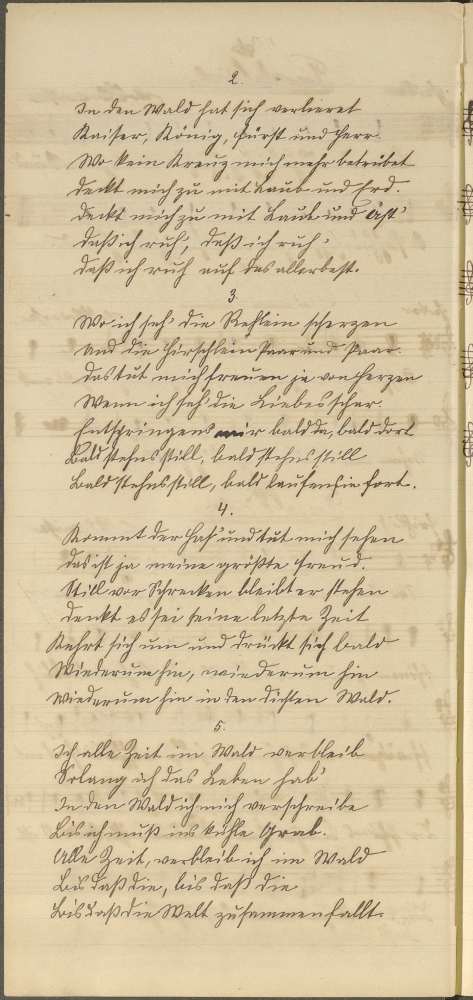 2.
In den Wald hat sich verlieret
Kaiser, König, Fürst und Herr.
Wo kein Kreuz mich mehr betrübet
deckt mich zu mit Laub und Erd.
deckt mich zu mit Laub und Äst'
daß ich ruh', daß ich ruh'
daß ich ruh auf das allerbest.
3.
Wo ich seh' die Rehlein scherzen
Und die Hirschlein Paar und Paar.
das tut mich freuen ja von Herzen
Wenn ich seh' die Liebesschar.
Entspringens mir bald da, bald dort
Bald stehns still, bald stehns still
bald stehns still, bald laufen sie fort.
4.
Kommt der Has' und tut mich sehen
das ist ja meine größte Freud.
Still vor Schrecken bleibt er stehen
denkt es sei seine letzte Zeit
Kehrt sich um und drückt sich bald
Wiederum hin, wiederum hin
wiederum hin in den dichten Wald.
5.
Ich alle Zeit im Wald verbleib
Solang ich das Leben hab'
In den Wald ich mich verschreibe
Bis ich muß ins kühle Grab.
Alle Zeit, verbleib ich im Wald
Bis daß die, bis daß die
Bis daß die Welt zusammenfallt.